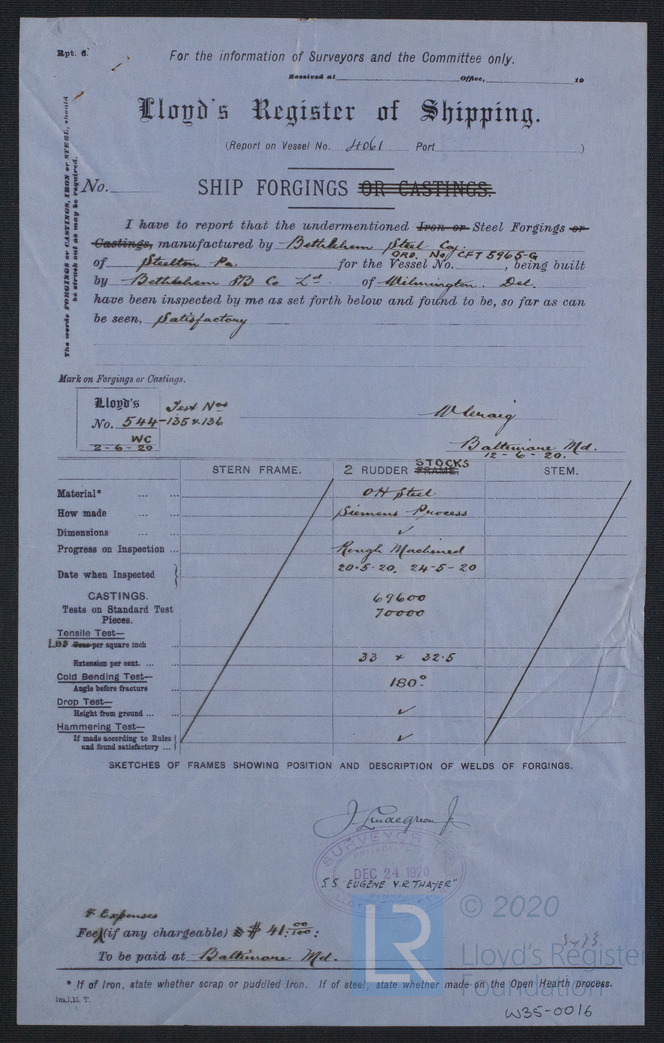 Rpt. 6.
For the information of Surveyors and the Committee only.
Received at Office, 19
Lloyd's Register of Shipping.
(Report on Vessel No. 4061 Port )
The words FORGINGS or CASTINGS, IRON or STEEL, should
be struck out as may be required.
No. SHIP FORGINGS OR CASTINGS.
I have to report that the undermentioned Iron or Steel Forgings or
Castings, manufactured by Bethlehem Steel Coy.
ORD. No/CFT 5965-G
of Steelton Pa. for the Vessel No. , being built
by Bethlehem SB Co Ld of Wilmington. Del.
have been inspected by me as set forth below and found to be, so far as can
be seen, Satisfactory
Mark on Forgings or Castings.
Lloyd's Test Nos
No. 544-135 & 136
WC
2-6-20
W Craig
Baltimore Md.
12-6-20.
STERN FRAME. 2 RUDDER FRAME. STOCKS STEM.
Material* ... ... OH Steel.
How made ... ... Siemens Process
Dimensions ... ... ✓
Progress on Inspection ... Rough Machined
Date when Inspected 20-5-20. 24-5-20
CASTINGS. 69600
Tests on Standard Test 70000
Pieces.
Tensile Test—
LBS Tons per square inch ...
Extension per cent. ... ... 33 & 32.5
Cold Bending Test—
Angle before fracture ... 180°
Drop Test—
Height from ground ... ... ✓
Hammering Test—
If made according to Rules ✓
and found satisfactory ...
SKETCHES OF FRAMES SHOWING POSITION AND DESCRIPTION OF WELDS OF FORGINGS.
J. Lindegren Jr
SURVEYOR TO
DEC 24 1920
SS "EUGENE V.R. THAYER"
& Expenses
Fee (if any chargeable) $ 41.00/100:
To be paid at Baltimore Md.
* If of Iron, state whether scrap or puddled Iron. If of steel, state whether made on the Open Hearth process.
1m,1,15. T.
LR
© 2020
Lloyd's Register
Foundation
W35-0016